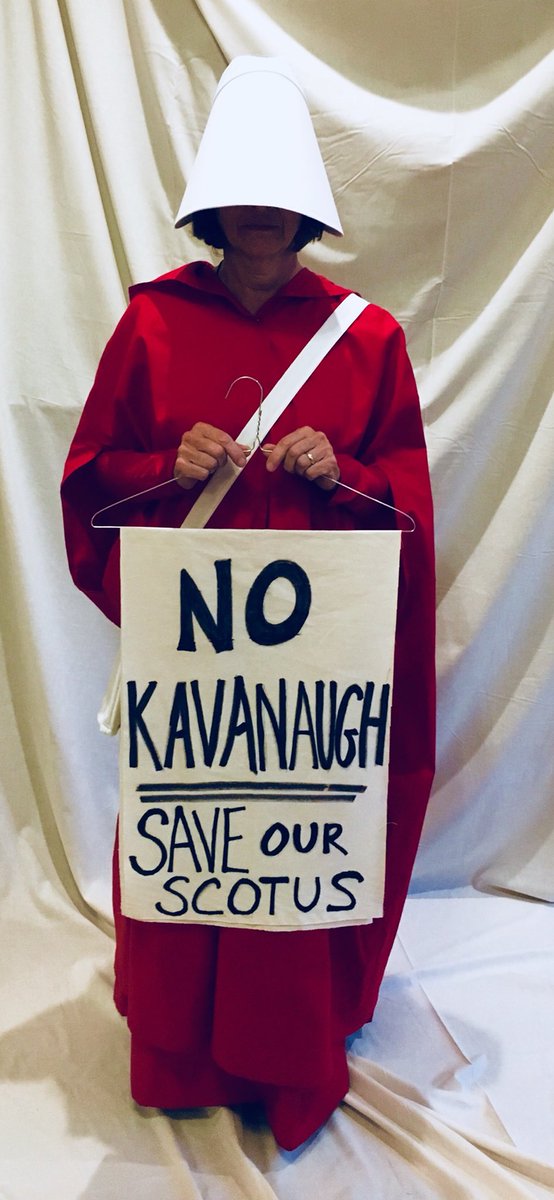 NO
KAVANAUGH
SAVE OUR
SCOTUS